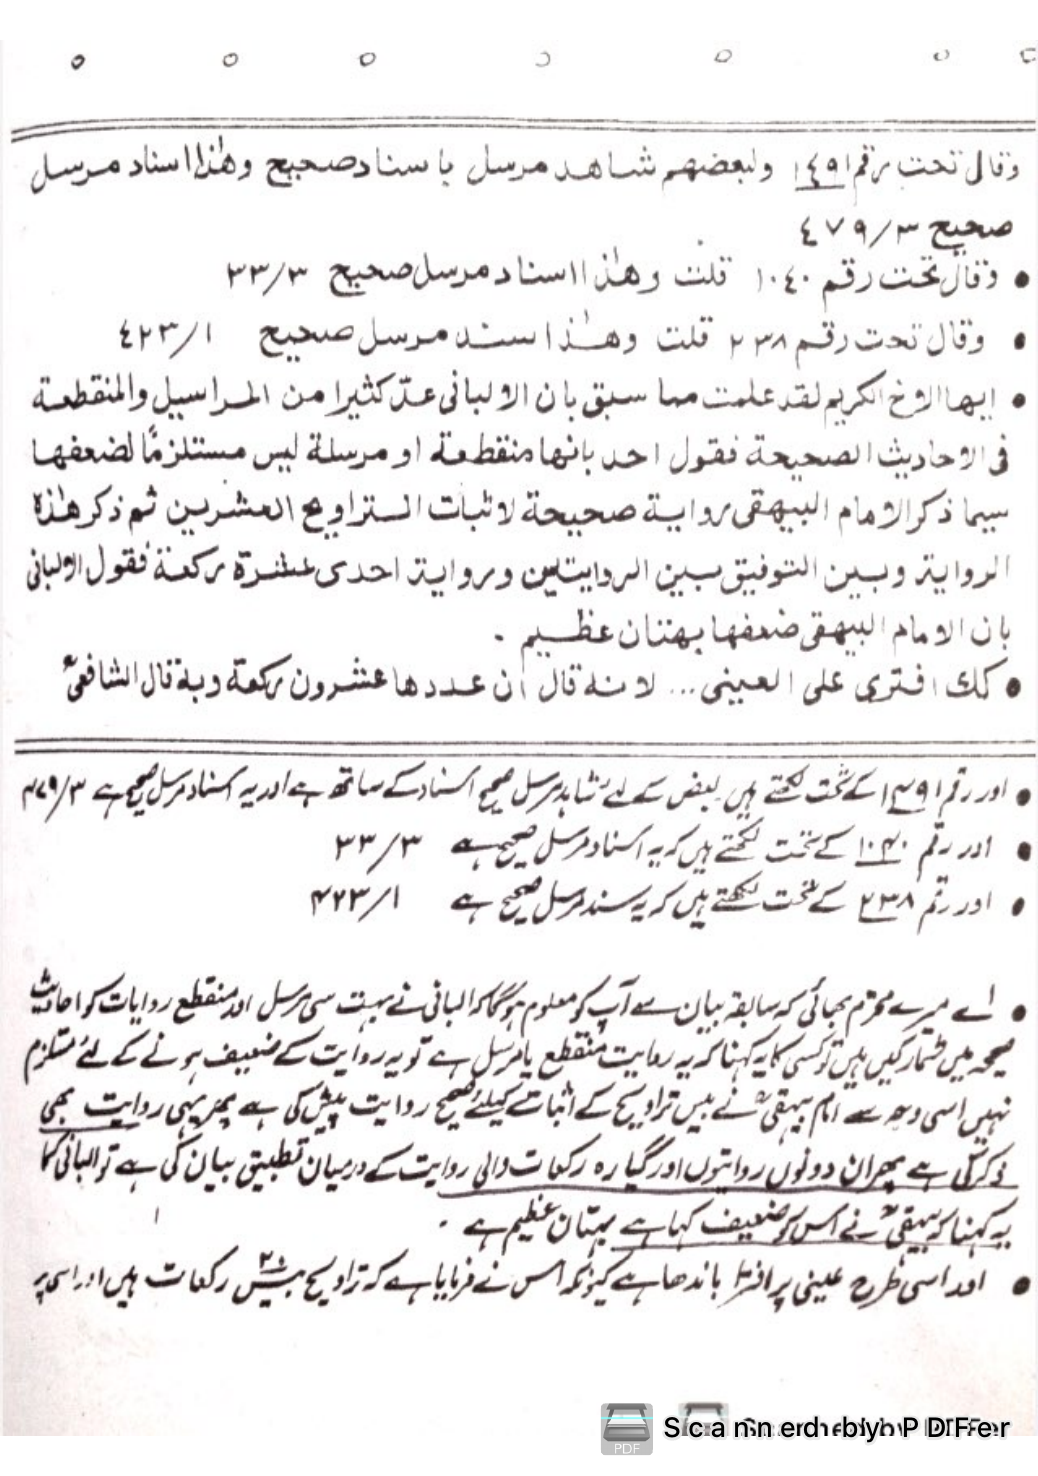 وقال تحت رقم ١٤٩١ ولبعضهم شاهد مرسل باسناد صحيح وهٰذا اسناد مرسل
صحيح ٤٧٩/٣
• وقال تحت رقم ١٠٤٠ قلت وهٰذا اسناد مرسل صحيح ٣٣/٣
• وقال تحت رقم ٢٣٨ قلت وهٰذا سند مرسل صحيح ٤٢٣/١
• ايها الاخ الكريم لقد علمت مما سبق بان الالبانى عدّ كثيرا من المراسيل والمنقطعة
فى الاحاديث الصحيحة فقول احد بانها منقطعة او مرسلة ليس مستلزمًا لضعفها
سيما ذكر الامام البيهقى رواية صحيحة لاثبات التراويح العشرين ثم ذكر هٰذه
الرواية وبين التوفيق بين الروايتين ورواية احدى عشرة ركعة فقول الالبانى
بان الامام البيهقى ضعفها بهتان عظيم ۔
• كك افترى على العينى... لانه قال ان عددها عشرون ركعة وبه قال الشافعىؒ
• اور رقم ۱۴۹۱ کے تحت لکھتے ہیں بعض کے لئے شاہد مرسل صحیح اسناد کے ساتھ ہے اور یہ اسناد مرسل صحیح ہے ۴۷۹/۳
• اور رقم ۱۰۴۰ کے تحت لکھتے ہیں کہ یہ اسناد مرسل صحیح ہے ۳۳/۳
• اور رقم ۲۳۸ کے تحت لکھتے ہیں کہ یہ سند مرسل صحیح ہے ۴۲۳/۱
• اے میرے محترم بھائی کہ سابقہ بیان سے آپ کو معلوم ہوگا کہ البانی نے بہت سی مرسل اور منقطع روایات کو احادیث
صحیحہ میں شمار کیں ہیں تو کسی کا یہ کہنا کہ یہ روایت منقطع یا مرسل ہے تو یہ روایت کے ضعیف ہونے کے لئے مستلزم
نہیں اسی وجہ سے امام بیہقیؒ نے بیس تراویح کے اثبات کیلئے صحیح روایت پیش کی ہے پھر یہی روایت بھی
ذکر کی ہے پھر ان دونوں روایتوں اور گیارہ رکعات والی روایت کے درمیان تطبیق بیان کی ہے تو البانی کا
یہ کہنا کہ بیہقیؒ نے اس کو ضعیف کہا ہے بہتان عظیم ہے ۔
• اور اسی طرح عینی پر افترا باندھا ہے کیونکہ اس نے فرمایا ہے کہ تراویح بیس ۲۰ رکعات ہیں اور اسی پر
Scanned by PDFer